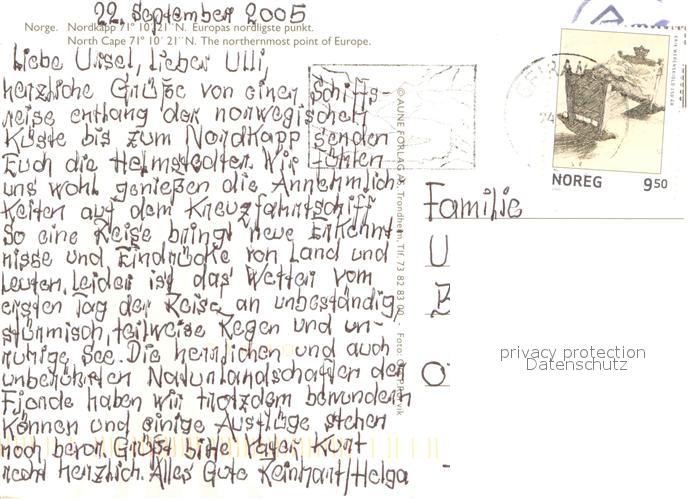 22. September 2005
Norge. Nordkapp 71° 10' 21" N. Europas nordligste punkt.
North Cape 71° 10' 21" N. The northernmost point of Europe.
Liebe Ursel, lieber Ulli,
herzliche Grüße von einer Schiffs-
reise entlang der norwegischen
Küste bis zum Nordkapp senden
Euch die Helmstedter. Wir fühlen
uns wohl genießen die Annehmlich-
keiten auf dem Kreuzfahrtschiff
So eine Reise bringt neue Erkennt
nisse und Eindrücke von Land und
Leuten. Leider ist das Wetter vom
ersten Tag der Reise an unbeständig
stürmisch, teilweise Regen und un-
ruhige See. Die herrlichen und auch
unberührten Naturlandschaften der
Fjorde haben wir trotzdem bewundern
können und einige Ausflüge stehen
noch bevor. Grüßt bitte Kurt
recht herzlich. Alles Gute Reinhart/Helga
© AUNE FORLAG AS, Trondheim. Tlf. 73 82 83 00 - Foto:
NOREG 9 50
Familie
U
Z
O
privacy protection
Datenschutz